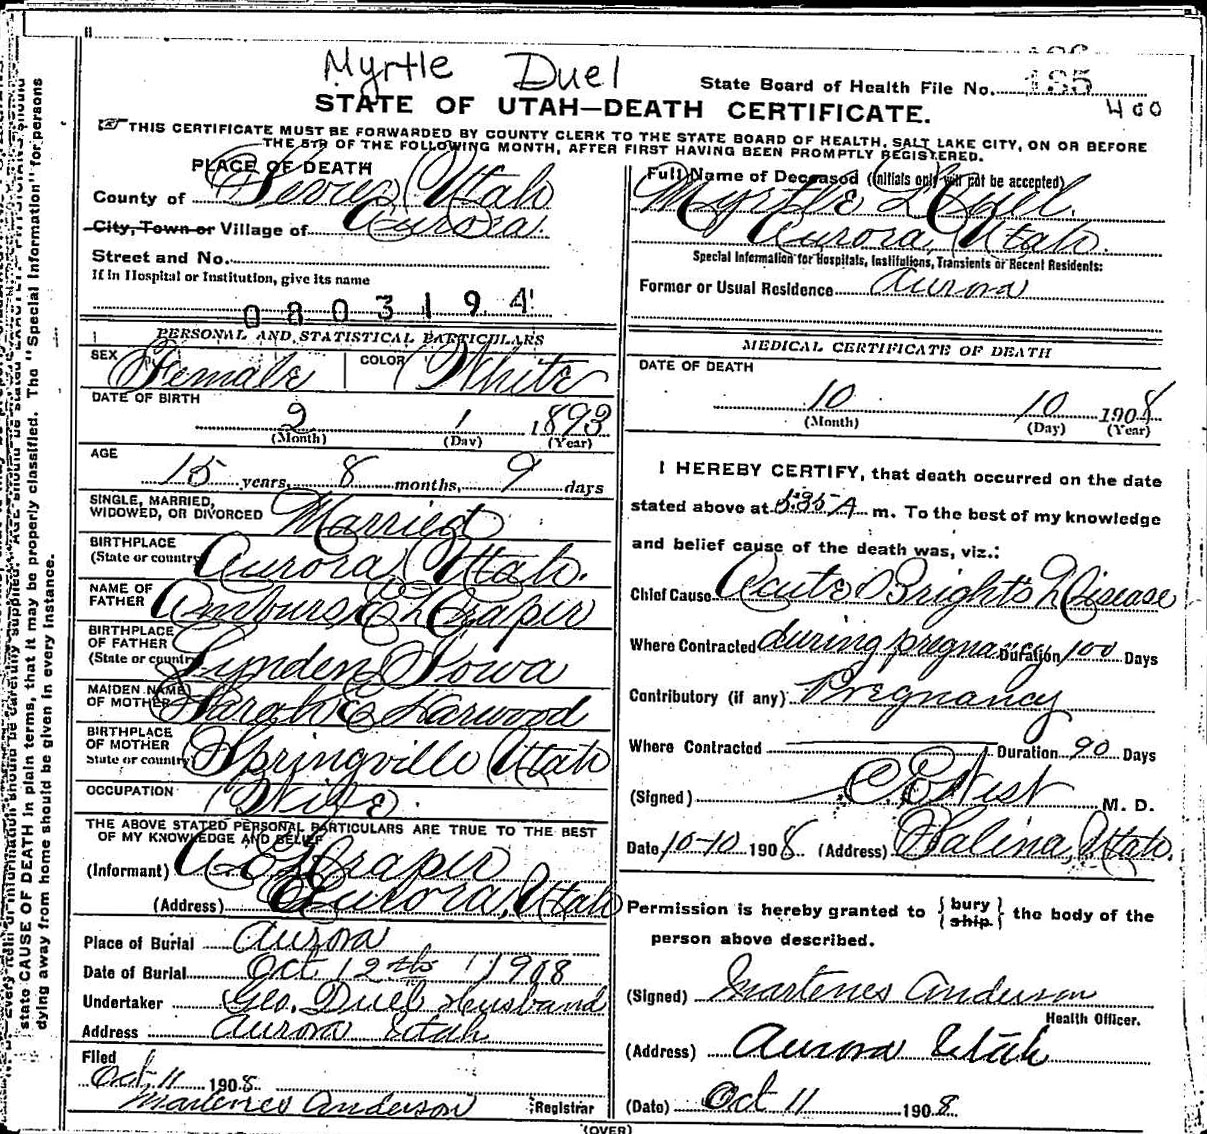 Myrtle Duel
State Board of Health File No. 185
400
STATE OF UTAH—DEATH CERTIFICATE.
THIS CERTIFICATE MUST BE FORWARDED BY COUNTY CLERK TO THE STATE BOARD OF HEALTH, SALT LAKE CITY, ON OR BEFORE
THE 5TH OF THE FOLLOWING MONTH, AFTER FIRST HAVING BEEN PROMPTLY REGISTERED.
PLACE OF DEATH
County of Sevier Utah
City, Town or Village of Aurora.
Street and No.
If in Hospital or Institution, give its name
080319 4
PERSONAL AND STATISTICAL PARTICULARS
SEX Female COLOR White
DATE OF BIRTH
2 1 1893
(Month) (Day) (Year)
AGE
15 years, 8 months, 9 days
SINGLE, MARRIED,
WIDOWED, OR DIVORCED Married
BIRTHPLACE
(State or country) Aurora Utah.
NAME OF
FATHER Draper
BIRTHPLACE
OF FATHER
(State or country) Lynden Iowa
MAIDEN NAME
OF MOTHER Sarah E Harwood
BIRTHPLACE
OF MOTHER
State or country Springville Utah
OCCUPATION Wife.
THE ABOVE STATED PERSONAL PARTICULARS ARE TRUE TO THE BEST
OF MY KNOWLEDGE AND BELIEF
(Informant) A E Draper
(Address) Aurora, Utah
Place of Burial Aurora
Date of Burial Oct 12th 1908
Undertaker Geo. Duel Husband
Address Aurora Utah
Filed
Oct. 11 1908
Martenes Anderson Registrar
Full Name of Deceased (Initials only will not be accepted)
Myrtle Duel.
Aurora, Utah.
Special Information for Hospitals, Institutions, Transients or Recent Residents:
Former or Usual Residence Aurora
MEDICAL CERTIFICATE OF DEATH
DATE OF DEATH
10 10 1908
(Month) (Day) (Year)
I HEREBY CERTIFY, that death occurred on the date
stated above at 5:35 A m. To the best of my knowledge
and belief cause of the death was, viz.:
Chief Cause Acute Bright's Disease
Where Contracted during pregnancy Duration 100 Days
Contributory (if any) Pregnancy
Where Contracted Duration 90 Days
(Signed) West M. D.
Date 10-10 1908. (Address) Salina, Utah.
Permission is hereby granted to { bury ship. } the body of the
person above described.
(Signed) Martenes Anderson
Health Officer.
(Address) Aurora Utah
(Date) Oct 11 1908.
(OVER)
state CAUSE OF DEATH in plain terms, that it may be properly classified. The "Special Information" for persons
dying away from home should be given in every instance.